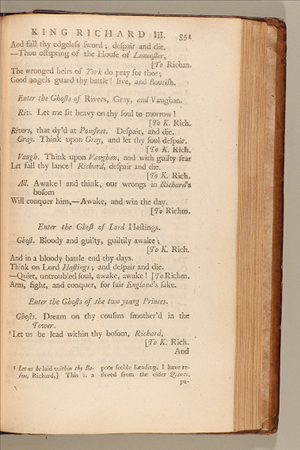 KING RICHARD III. 351
And fall thy edgeless sword; despair and die.
—Thou offspring of the House of Lancaster,
[To Richm.
The wronged heirs of York do pray for thee;
Good angels guard thy battle! live, and flourish.
Enter the Ghosts of Rivers, Gray, and Vaughan.
Riv. Let me sit heavy on thy soul to morrow!
[To K. Rich.
Rivers, that dy'd at Pomfret. Despair, and die.
Gray. Think upon Gray, and let thy soul despair.
[To K. Rich.
Vaugh. Think upon Vaughan, and with guilty fear
Let fall thy lance! Richard, despair and die.
[To K. Rich.
All. Awake! and think, our wrongs in Richard's
bosom
Will conquer him,—Awake, and win the day.
[To Richm.
Enter the Ghost of Lord Hastings.
Ghost. Bloody and guilty, guiltily awake;
[To K. Rich.
And in a bloody battle end thy days.
Think on Lord Hastings; and despair and die.
—Quiet, untroubled soul, awake, awake! [To Richm.
Arm, fight, and conquer, for fair England's sake.
Enter the Ghosts of the two young Princes.
Ghosts. Dream on thy cousins smother'd in the
Tower.
Let us be lead within thy bosom, Richard,
[To K. Rich.
And
Let us be laid within thy Bo- poor feeble Reading. I have re-
som, Richard.] This is a stored from the elder Quarto,
pu-